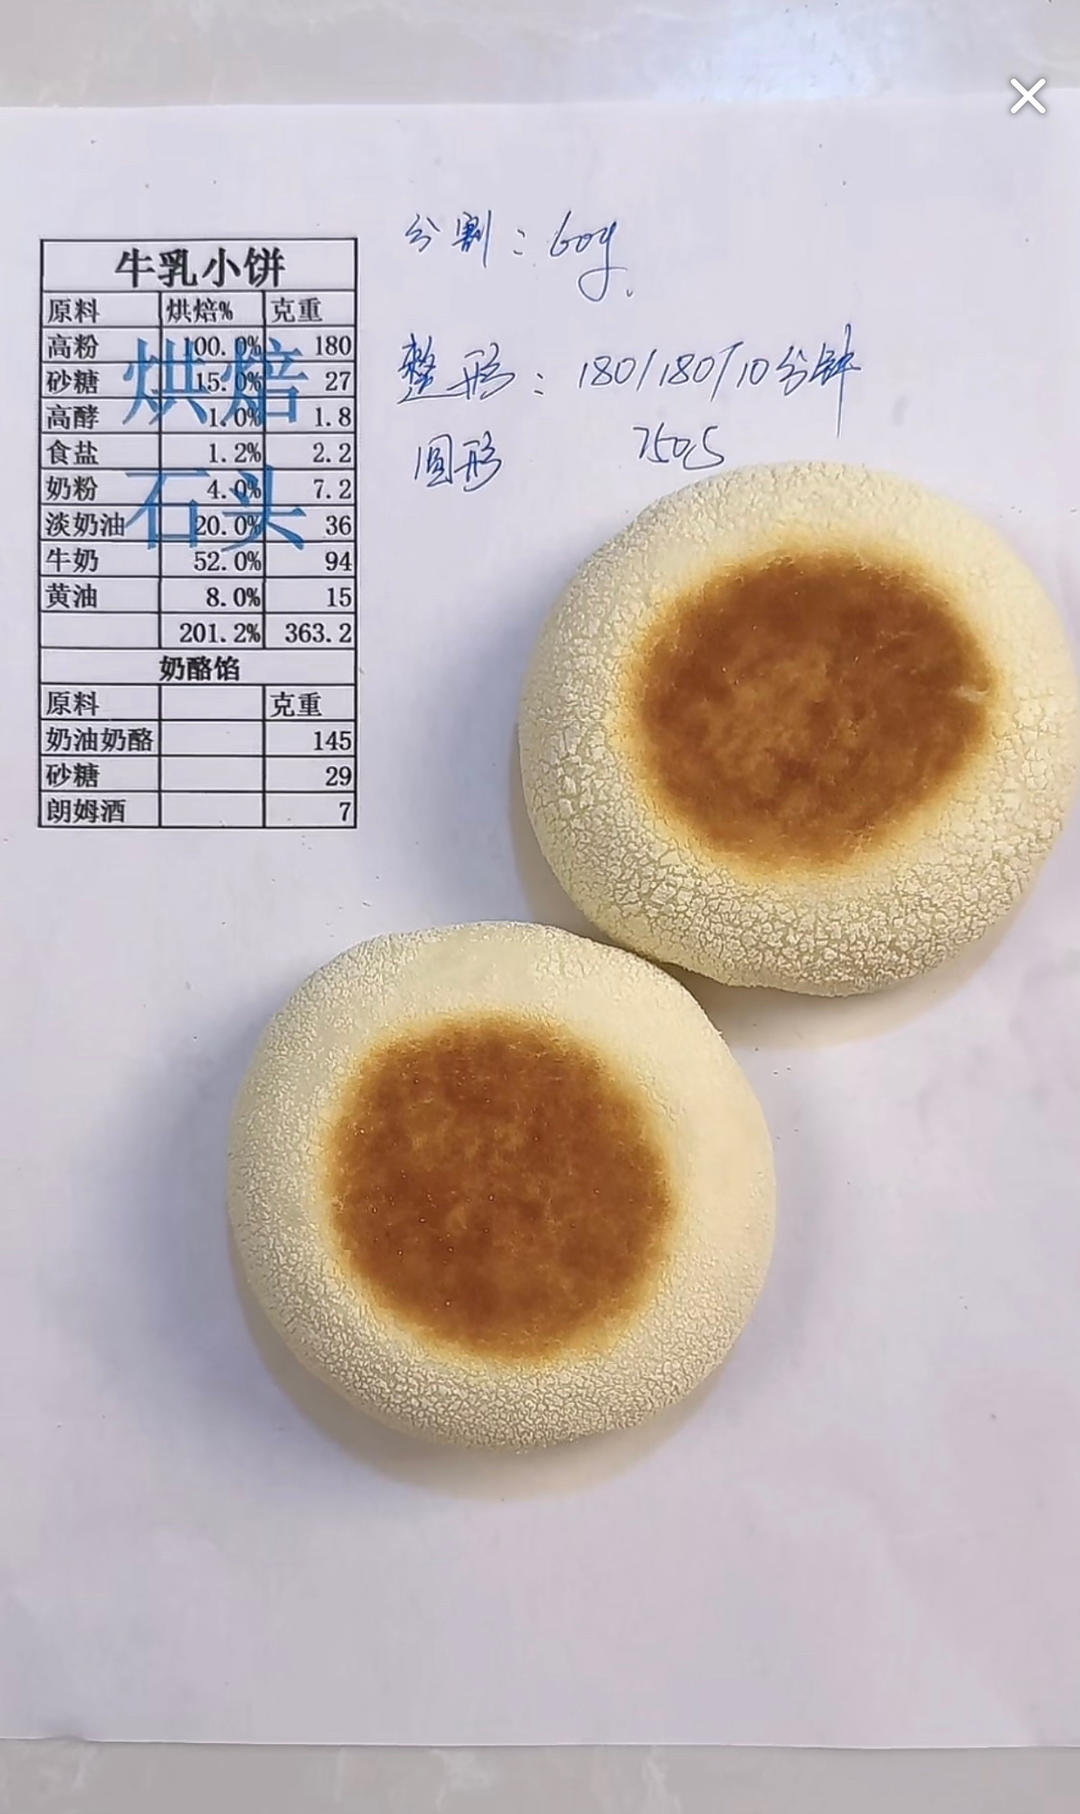 分割：60g.
牛乳小饼
原料 烘焙% 克重
整形：180/180/10分钟
高粉 100.0% 180
砂糖 15.0% 27
高酵 1.0% 1.8
圆形 750S
食盐 1.2% 2.2
奶粉 4.0% 7.2
淡奶油 20.0% 36
牛奶 52.0% 94
黄油 8.0% 15
201.2% 363.2
奶酪馅
原料 克重
奶油奶酪 145
砂糖 29
朗姆酒 7
烘焙
石头